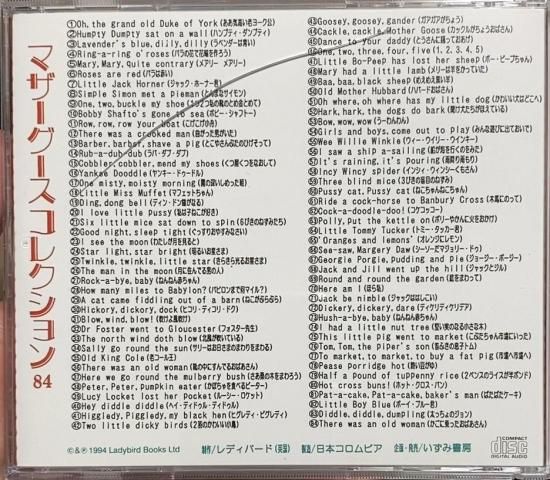 マザーグースコレクション
84
①Oh, the grand old Duke of York (ああ気高い老ヨーク公)
②Humpty Dumpty sat on a wall (ハンプティ・ダンプティ)
③Lavender's blue, dilly, dilly (ラベンダーは青い)
④Ring-a-ring o'roses (バラの花で花輪を作ろう)
⑤Mary, Mary, Quite contrary (メアリー メアリー)
⑥Roses are red (バラは赤い)
⑦Little Jack Horner (ジャック・ホーナー君)
⑧Simple Simon met a Pieman (とんまなサイモン)
⑨One, two, buckle my shoe
⑩Bobby Shafto's gone to sea (ボビー・シャフトー)
⑪Row, row, row your boat (こげこげ舟を)
⑫There was a crooked man (曲がった男がいた)
⑬Barber, barber, shave a pig (とこやさんぶたのひげそって)
⑭Rub-a-dub-dub (ラバ・ダブ・ダブ)
⑮Cobbler, cobbler, mend my shoes (くつ屋くつをなおして)
⑯Yankee Doodle (ヤンキー・ドゥードル)
⑰One misty, moisty morning
⑱Little Miss Muffet (マフェットちゃん)
⑲Ding, dong bell (ディン・ドン鐘がなる)
⑳I love little Pussy (私は子ねこが好き)
㉑Six little mice sat down to spin (6ぴきのねずみたち)
㉒Good night, sleep tight (ぐっすりおやすみなさい)
㉓I see the moon (わたしが月を見ると)
㉔Star light, star bright (明るいお星さま)
㉕Twinkle, twinkle, little star (きらきら光るお星さま)
㉖The man in the moon (月に住んでる男の人)
㉗Rock-a-bye, baby (ねんねん赤ちゃん)
㉘How many miles to Babylon? (バビロンまで何マイル?)
㉙A cat came fiddling out of a barn (ねこがぶらぶら)
㉚Hickory, dickory, dock (ヒコリ・ディコリ・ドク)
㉛Blow, wind, blow! (吹けよ風吹け)
㉜Dr Foster went to Gloucester (フォスター先生)
㉝The north wind doth blow (北風が吹いている)
㉞Sally go round the sun (サリーはお日さまのまわりをまわる)
㉟Old King Cole (老コール王)
㊱There was an old woman (靴の中にすんでるおばあさん)
㊲Here we go round the mulberry bush (さあ桑の木をまわろう)
㊳Peter, Peter, Pumpkin eater (かぼちゃを食べるピーター)
㊴Lucy Locket lost her pocket (ルーシー・ロケット)
㊵Hey diddle diddle (ヘイ・ディドゥル・ディドゥル)
㊶Higgledy, Piggledy, my black hen (ヒグレディ・ピグレディ)
㊷Two little dicky birds (2羽のかわいい小鳥)
㊸Goosey, goosey, gander (ガアガアがちょう)
㊹Cackle, cackle, Mother Goose (カックルがちょうおばさん)
㊺Dance to your daddy (とうさんに踊っておあげ)
㊻One, two, three, four, five (1, 2, 3, 4, 5)
㊼Little Bo-Peep has lost her sheep (ボー・ピープちゃん)
㊽Mary had a little lamb (メリーは羊をかっていた)
㊾Baa, baa, black sheep (めえめえ黒い羊)
㊿Old Mother Hubbard (ハバードおばさん)
51Oh where, oh where has my little dog (かわいい犬はどこへ)
52Hark, hark, the dogs do bark
53Bow, wow, wow (うーわんわん)
54Girls and boys, come out to play (みんな遊びに出ておいで)
55Wee Willie Winkie (ウィー・ウイリー・ウインキー)
56I saw a ship a-sailing (船が航海を行くのをみた)
57It's raining, it's Pouring (雨降り雨もり)
58Incy Wincy spider (インシィ・ウィンシィくも)
59Three blind mice (3びきの盲目のねずみ)
60Pussy cat, Pussy cat (ねこちゃんねこちゃん)
61Ride a cock-horse to Banbury Cross (木馬にのって)
62Cock-a-doodle-doo! (コケコッコー)
63Polly, put the kettle on (ポリーやかんに火をおかけ)
64Little Tommy Tucker (トミー・タッカー君)
65'Oranges and lemons' (オレンジにレモン)
66See-saw, Margery Daw (シーソーだマジョリー・ドゥ)
67Georgie Porgie, Pudding and Pie (ジョージー・ポージー)
68Jack and Jill went up the hill (ジャックとジル)
69Round and round the garden (庭をまわって)
70Here am I (ほら私)
71Jack be nimble (ジャックははしこい)
72Dickery, dickery, dare (ディケリディケリデア)
73Hush-a-bye, baby (ねんねん赤ちゃん)
74I had a little nut tree
75This little Pig went to market (こぶたちゃん市場にいった)
76Tom, Tom, the Piper's son (笛ふきの息子トム)
77To market, to market, to buy a fat pig (市場へ市場へ)
78Pease Porridge hot
79Half a Pound of tuppenny rice (2ペンスのライスが半ポンド)
80Hot cross buns! (ホット・クロス・バン)
81Pat-a-cake, Pat-a-cake, baker's man (ぱたぱたケーキ)
82Little Boy Blue (ボーイ・ブルー君)
83Diddle, diddle, dumpling (えっちょのジョン)
84There was an old woman (かごに乗ったおばあさん)
©&℗1994 Ladybird Books Ltd
制作/レディバード(英国)
製造/日本コロムビア
企画・発売/いずみ書房
COMPACT
disc
DIGITAL AUDIO